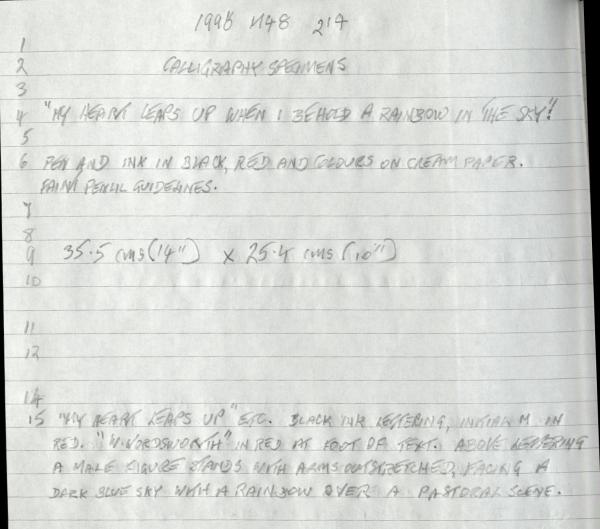 1996 H48 214
1
2 CALLIGRAPHY SPECIMENS
3
4 "MY HEART LEAPS UP WHEN I BEHOLD A RAINBOW IN THE SKY"!
5
6 PEN AND INK IN BLACK, RED AND COLOURS ON CREAM PAPER.
FAINT PENCIL GUIDELINES.
7
8
9 35.5 cms (14") x 25.4 cms (10")
10
11
12
14
15 "MY HEART LEAPS UP" ETC. BLACK INK LETTERING, INITIAL M IN
RED. "W.WORDSWORTH" IN RED AT FOOT OF TEXT. ABOVE LETTERING
A MALE FIGURE STANDS WITH ARMS OUTSTRETCHED, FACING A
DARK BLUE SKY WITH A RAINBOW OVER A PASTORAL SCENE.